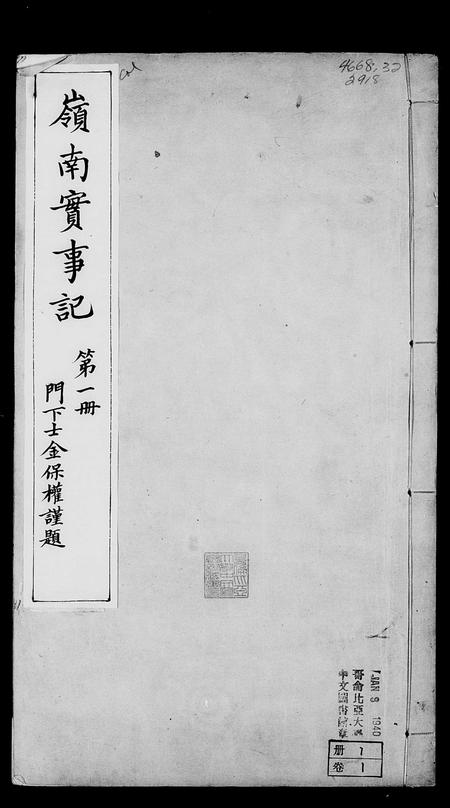 嶺南實事記
第一册
門下士金保權謹題
col
4668.32
2918
JAN 9 1940
哥倫比亞大學
中文圖書館章
册 1
卷 1